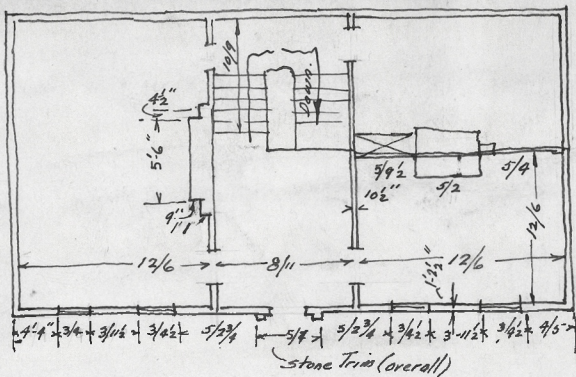 10/9
Down.
4½"
5'-6"
9"
5/9½
5/2
5/4
10½"
12/6
12/6
8/11
12/6
1'-2½"
4'-4"
3/4
3/11½
3/4½
5/2¾
5/7
5/2¾
3/4½
3'-11½
3/4½
4/5"
Stone Trim (overall)